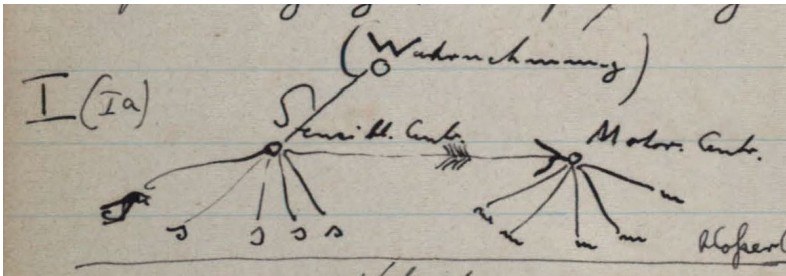 (Wahrnehmung)
I (Ia) Sensibl. Centr. Motor. Centr.
s s s s m m m m m